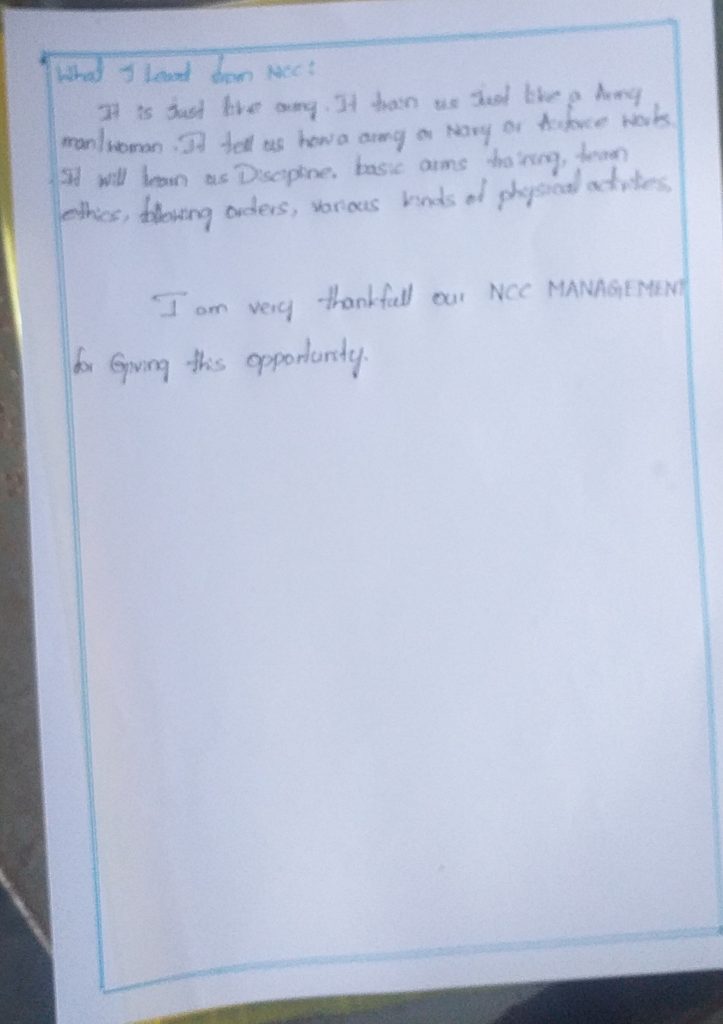 What I Learnd from NCC:
It is Just like army. It train us Just like a Army
man/woman. It tell us how a army or Navy or Airforce works.
It will train us Discipline. basic arms training, team
ethics, following orders, various kinds of physical activities.
I am very thankfull our NCC MANAGEMENT
for Giving this opportunity.